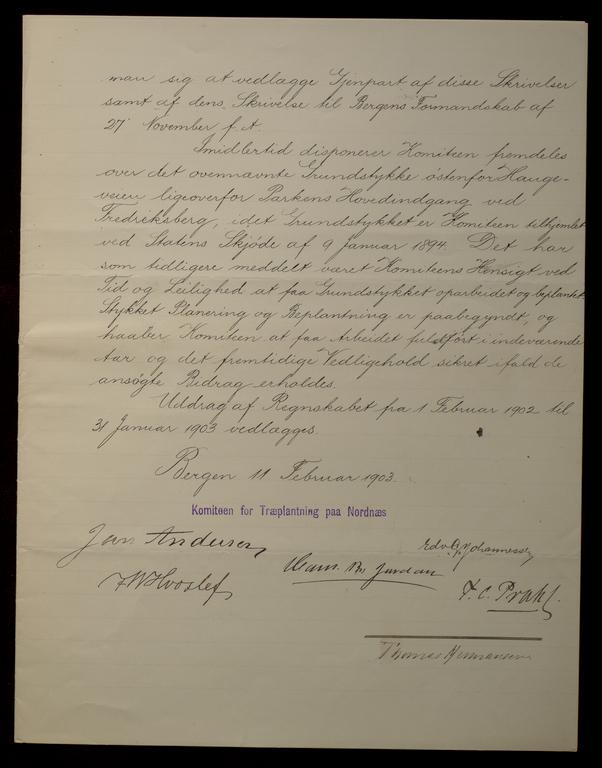 man sig at vedlægge Gjenpart af disse Skrivelser
samt af dens Skrivelse til Bergens Formandskab af
27 November f. A.
Imidlertid disponerer Komiteen fremdeles
over det ovennævnte Grundstykke østenfor Hauge-
veien ligeoverfor Parkens Hovedindgang ved
Fredreksberg, idet Grundstykket er Komiteen tilhjemlet
ved Statens Skjøde af 9 Januar 1894. Det har
som tidligere meddelt været Komiteens Hensigt ved
Tid og Leilighed at faa Grundstykket oparbeidet og beplantet
Stykket Planering og Beplantning er paabegyndt, og
haaber Komiteen at faa Arbeidet fuldført i indeværende
Aar og det fremtidige Vedligehold sikret ifald de
ansøgte Bidrag erholdes.
Uddrag af Regnskabet fra 1 Februar 1902 til
31 Januar 1903 vedlægges.
Bergen 11 Februar 1903.
Komiteen for Træplantning paa Nordnæs
Jan Andersen
Edv. G. Johannessen
Jordan
F W Hvoslef
F. C. Prahl
Thomas Hermansen